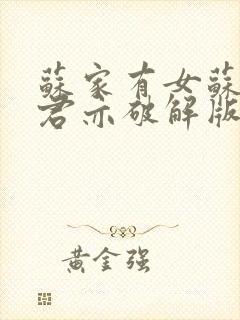 蘇家有女蘇
君亦破解版
黃金强